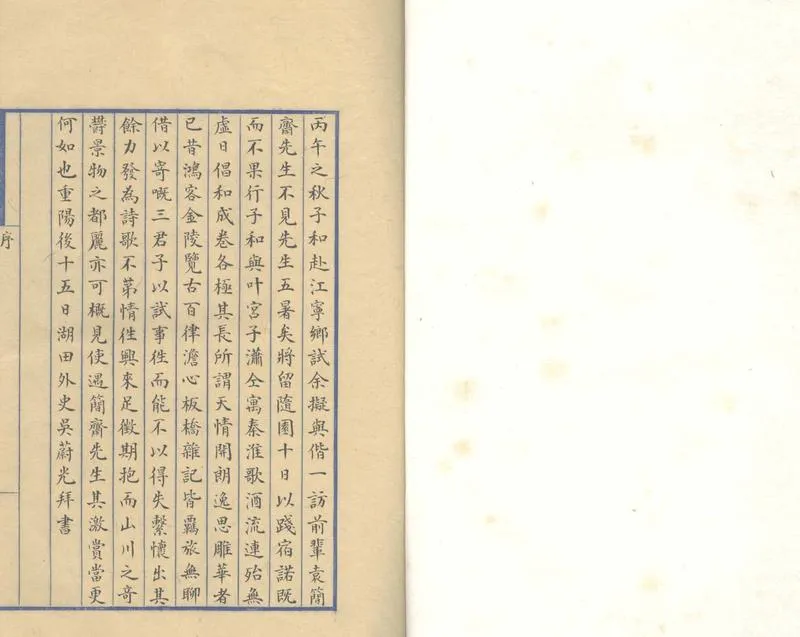 丙午之秋子和赴江寧鄉試余擬與偕一訪前輩袁簡
齋先生不見先生五暑矣將留隨園十日以踐宿諾既
而不果行子和與叶宮子瀟仝寓秦淮歌酒流連殆無
虛日倡和成卷各極其長所謂天情開朗逸思雕華者
已昔鴻客金陵覽古百律澹心板橋雜記皆羈旅無聊
借以寄嘅三君子以試事徃而能不以得失繫懷出其
餘力發為詩歌不苐情徃興來足徵期抱而山川之奇
景物之都麗亦可概見使遇簡齋先生其激賞當更
何如也重陽後十五日湖田外史吳蔚光拜書
序